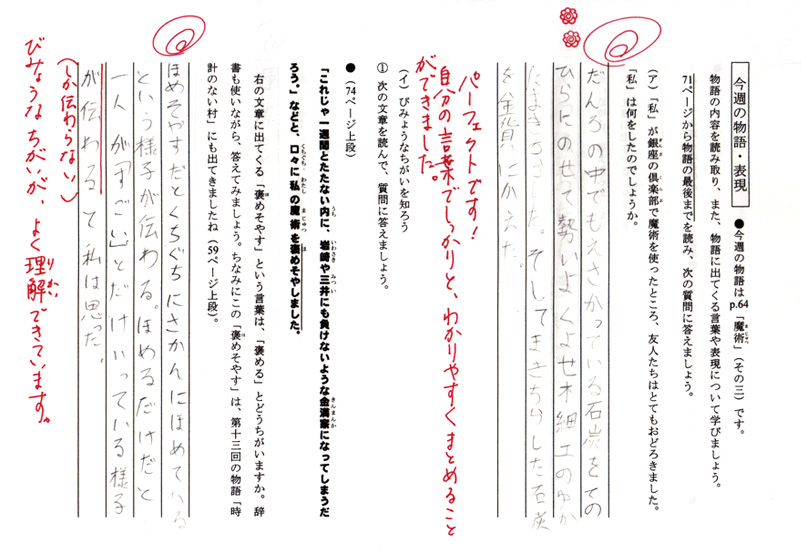 今週の物語・表現
●今週の物語は p.64「魔術」(その三)です。
物語の内容を読み取り、また、物語に出てくる言葉や表現について学びましょう。
71ページから物語の最後までを読み、次の質問に答えましょう。
(ア)「私」が銀座の倶楽部で魔術を使ったところ、友人たちはとてもおどろきました。
「私」は何をしたのでしょうか。
だんろの中でもえさかっている石炭をての
ひらにのせて勢いよくよせ木細工のゆか
にまきちらした。そしてまきちらした石炭
を金貨にかえた。
パーフェクトです!
自分の言葉でしっかりと、わかりやすくまとめること
ができました
(イ)びみょうなちがいを知ろう
① 次の文章を読んで、質問に答えましょう。
●(74ページ上段)
「これじゃ一週間とたたない内に、岩崎や三井にも負けないような金満家になってしまうだ
ろう。」などと、口々に私の魔術を褒めそやしました。
右の文章に出てくる「褒めそやす」という言葉は、「褒める」とどうちがいますか。辞
書も使いながら、答えてみましょう。ちなみにこの「褒めそやす」は、第十三回の物語「時
計のない村」にも出てきましたね(59ページ上段)。
ほめそやすだとくちぐちにさかんにほめている
という様子が伝わる。ほめるだけだと
一人が「すごい」とだけいっている様子
が伝わる て私は思った。
(しか伝わらない)
びみょうなちがいが、よく理解できています。